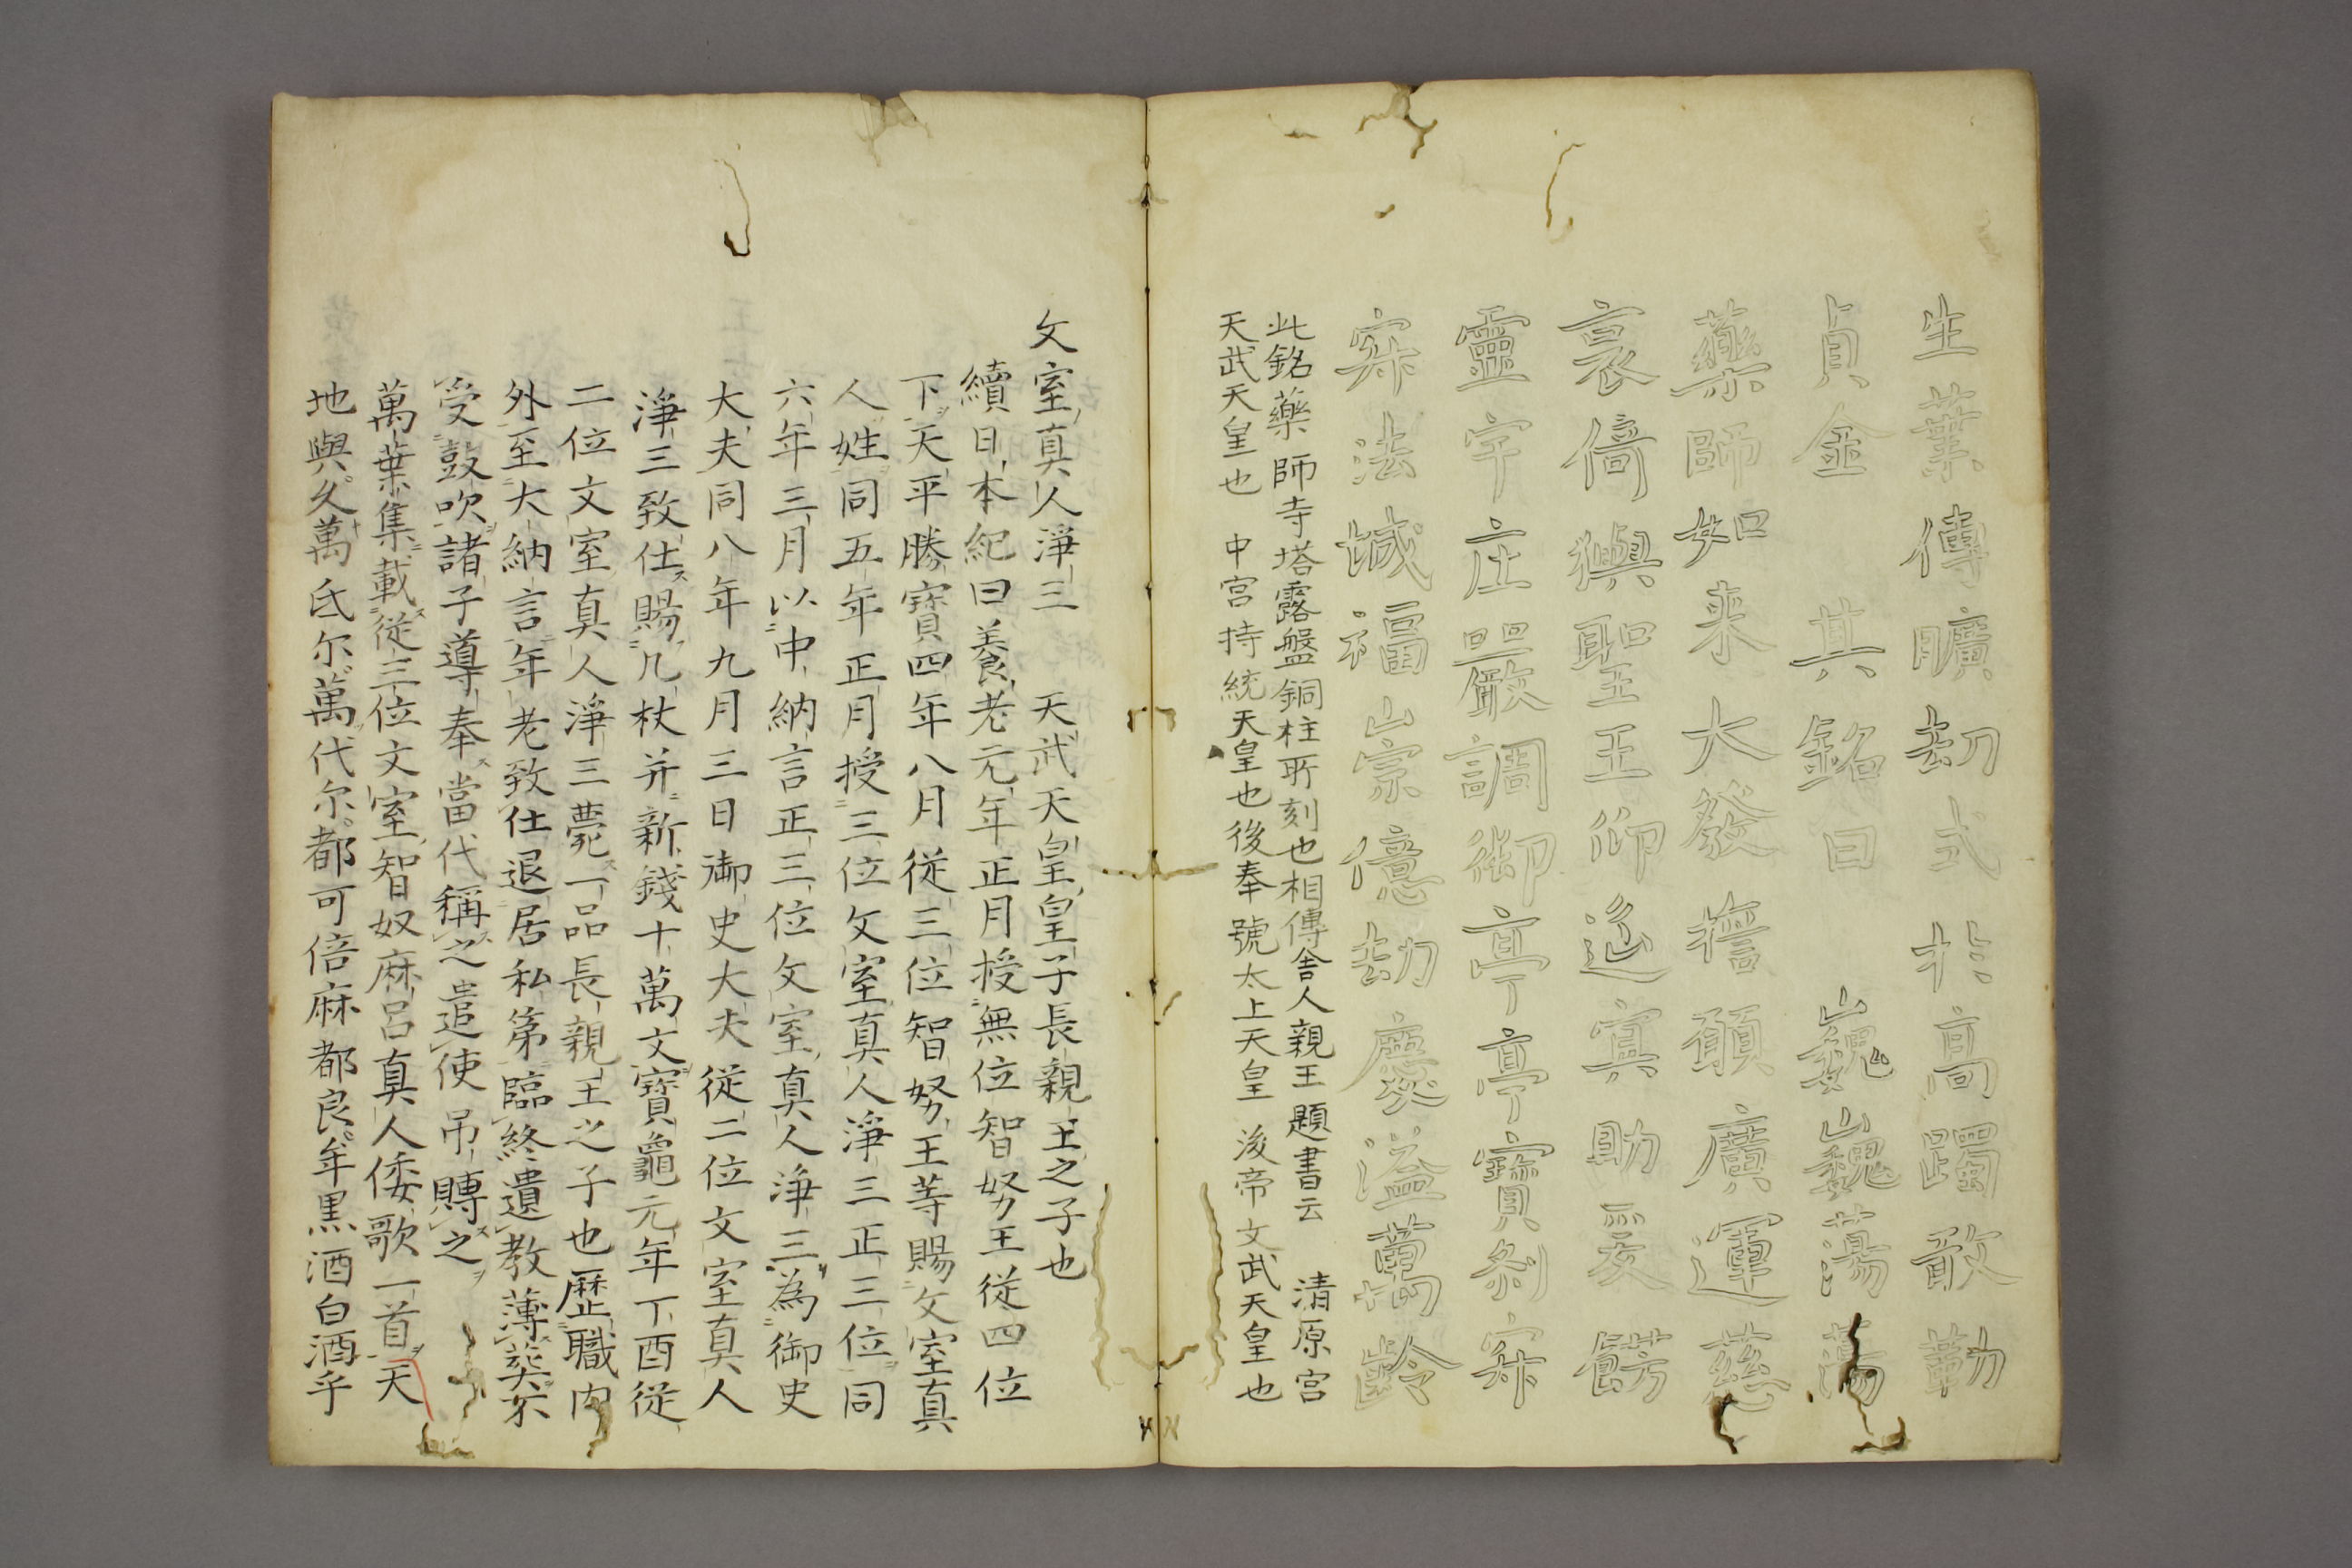 生業傳曠劫式於高躅敢勒
貞金 其銘曰 巍巍蕩蕩
藥師如来大發擔願廣運慈
哀倚㺞聖王仰延冥助爰餝
靈宇庄嚴調御亭亭寳刹寂
寂法城福崇億劫慶溢萬齡
此銘藥師寺塔露盤銅柱所刻也相傳舍人親王題書云 清原宮
天武天皇也 中宮持統天皇也後奉號太上天皇 後帝文武天皇也
文室真人淨三 天武天皇皇子長親王之子也
續日本紀曰養老元年正月授無位智努王從四位
下天平勝寳四年八月從三位智努王等賜文室真
人姓同五年正月授三位文室真人淨三正三位同
六年三月以中納言正三位文室真人淨三為御史
大夫同八年九月三日御史大夫從二位文室真人
淨三致仕賜几杖并新錢十萬文寳龜元年丁酉從
二位文室真人淨三薨一品長親王之子也歷職内
外至大納言年老致仕退居私第臨終遺教薄葬不
受鼓吹諸子導奉當代稱之遣使吊賻之
萬葉集載從三位文室智奴麻呂真人倭歌一首天
地與久萬氐尓萬代尓都可倍麻都良牟黒酒白酒乎